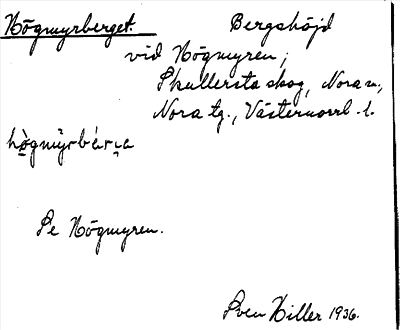 Högmyrberget. Bergshöjd
vid Högmyren;
Skullersta skog, Nora sn,
Nora tg., Västernorrl. l.
Se Högmyren.
Sven Hiller 1936.